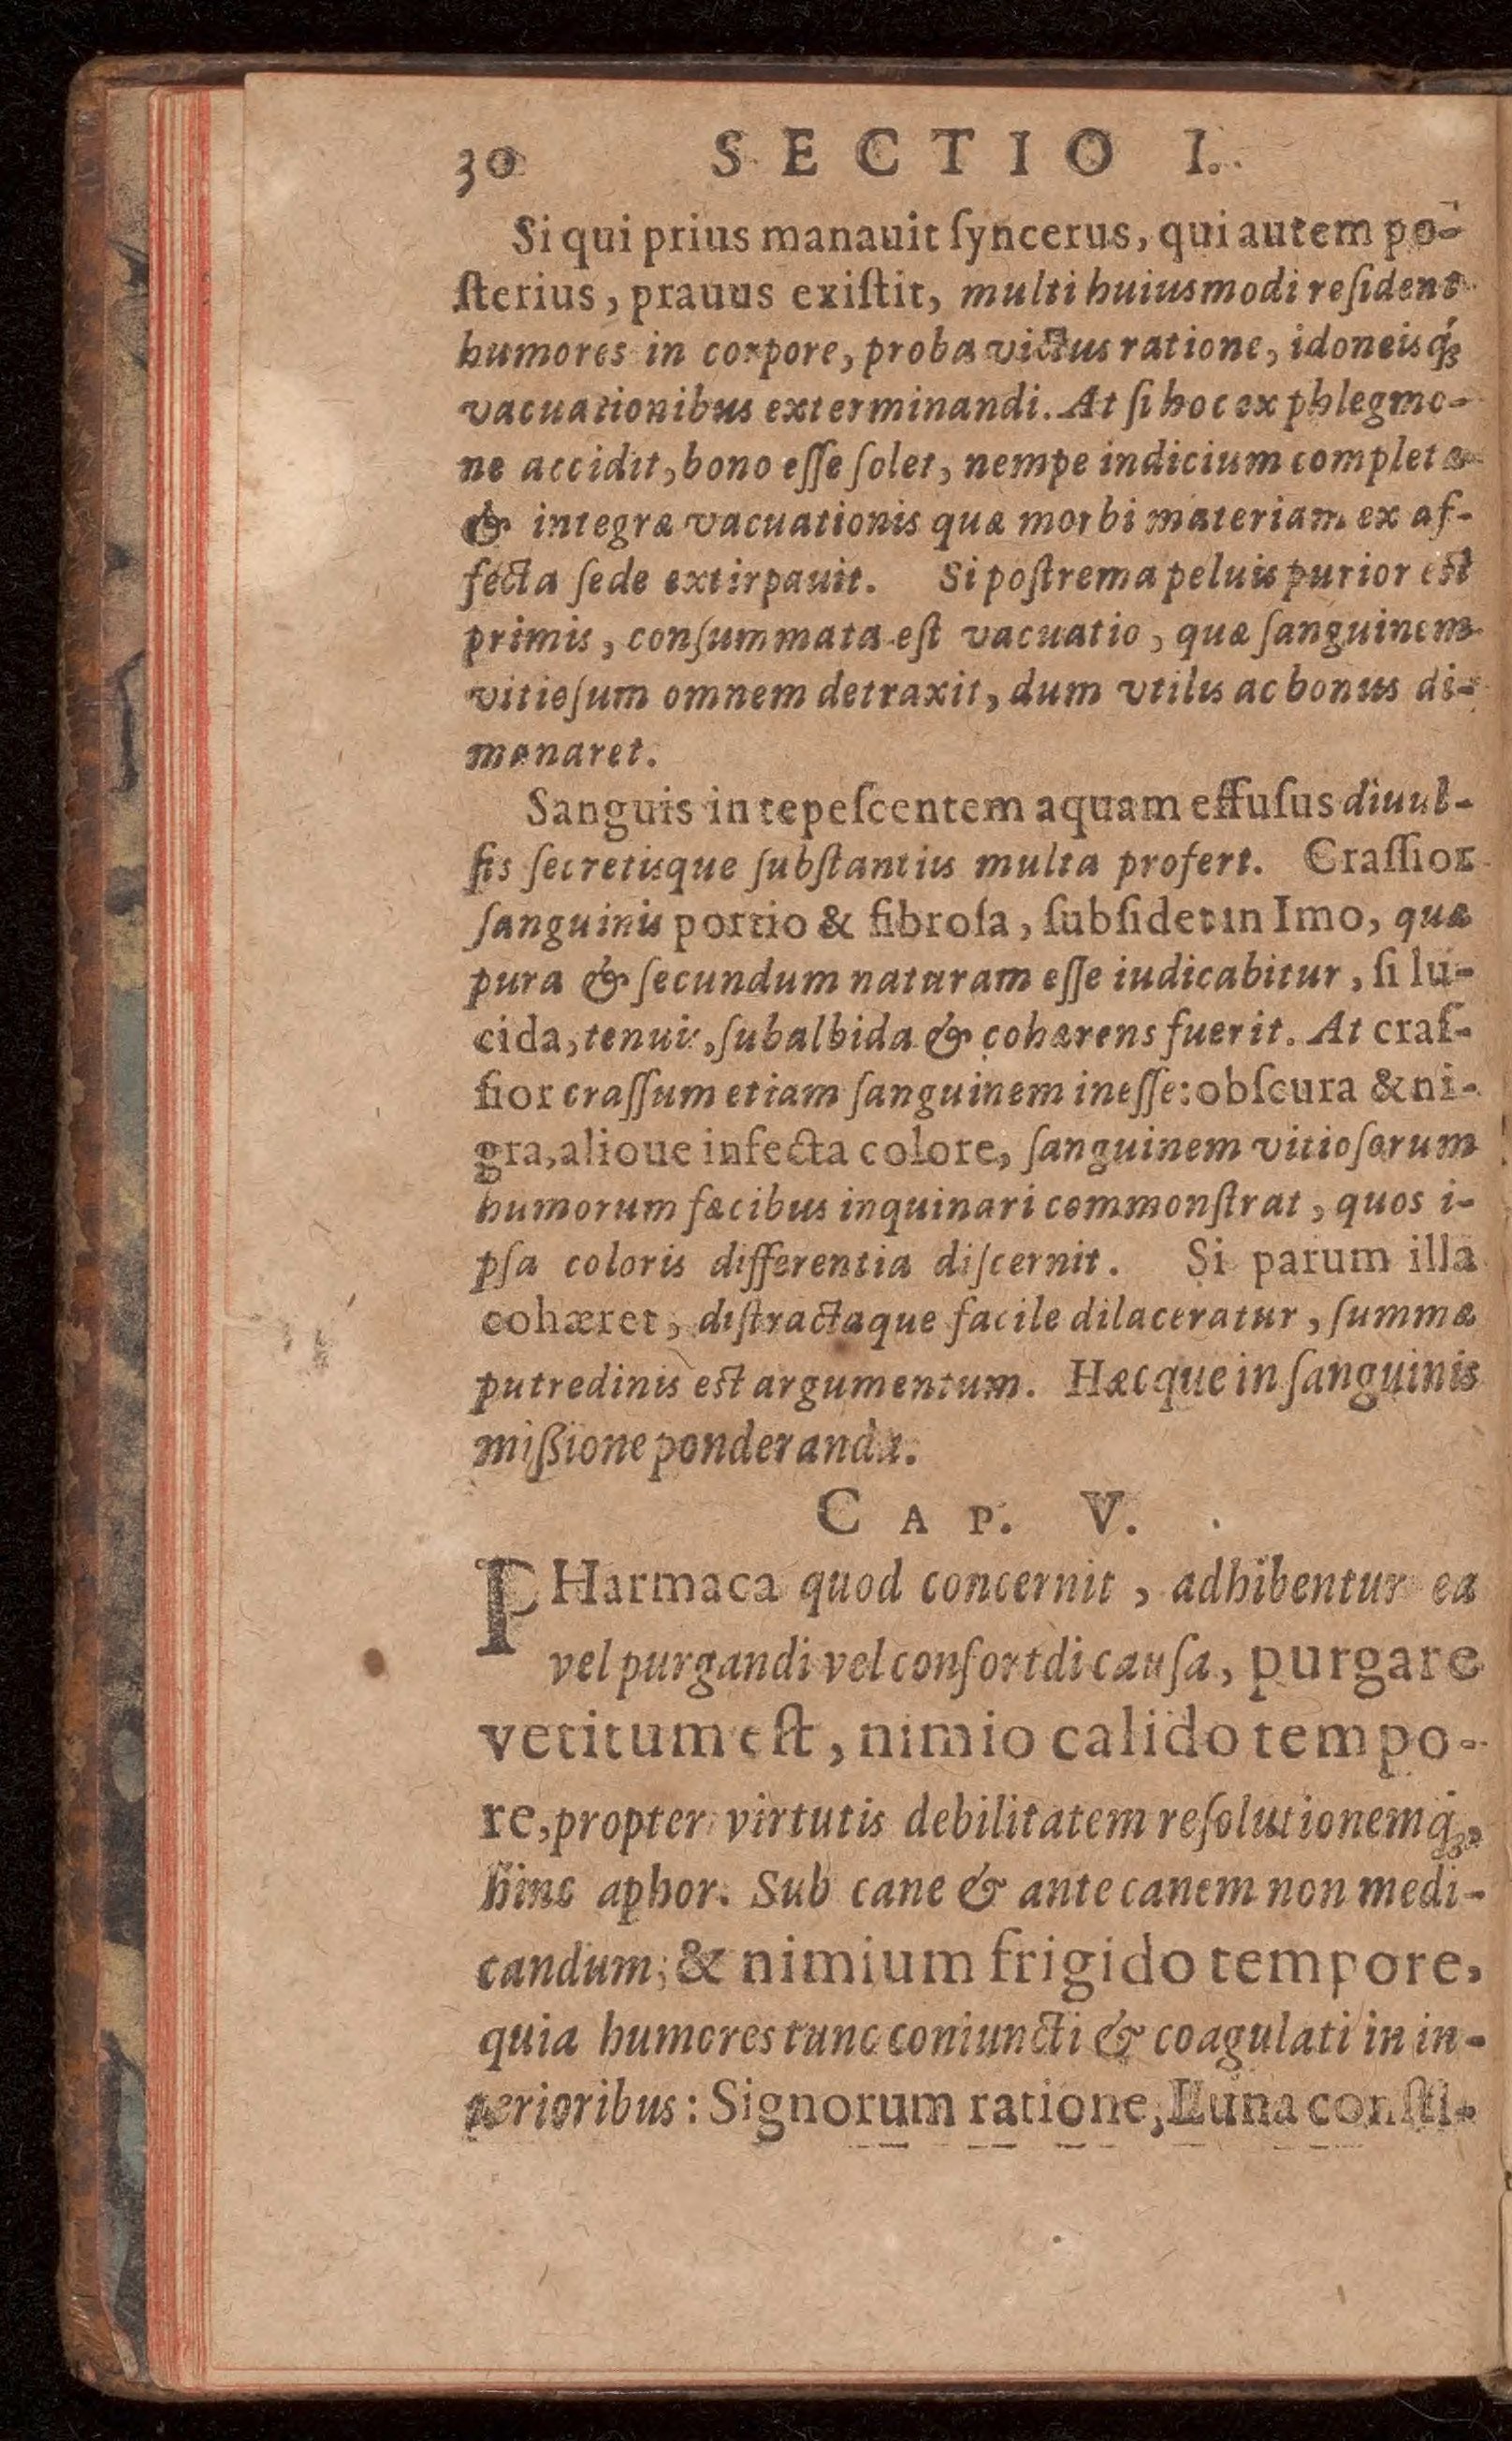 30 SECTIO I.
Si qui prius manauit ſyncerus, qui autem po-
ſterius, prauus exiſtit, multi huiusmodi reſident
humores in corpore, proba victus ratione, idoneisq́;
vacuationibus exterminandi. At ſi hoc ex phlegmo-
ne accidit, bono eſſe ſolet, nempe indicium completæ
& integræ vacuationis quæ morbi materiam ex af-
fecta ſede extirpauit. Si poſtrema peluis purior est
primis, conſummata eſt vacuatio, quæ ſanguinem
vitioſum omnem detraxit, dum vtilis ac bonus di-
manaret.
Sanguis in tepeſcentem aquam effuſus diuul-
ſis ſecretisque ſubſtantiis multa profert. Craſſior
ſanguinis portio & fibroſa, ſubſidet in Imo, quæ
pura & ſecundum naturam eſſe iudicabitur, ſi lu-
cida, tenuis, ſubalbida & cohærens fuerit. At craſ-
ſior craſſum etiam ſanguinem ineſſe: obſcura & ni-
gra, alioue infecta colore, ſanguinem vitioſorum
humorum fæcibus inquinari commonſtrat, quos i-
pſa coloris differentia diſcernit. Si parum illa
cohæret, diſtractaque facile dilaceratur, ſummæ
putredinis est argumentum. Hæcque in ſanguinis
miſsione ponderanda.
CAP. V.
PHarmaca quod concernit, adhibentur ea
vel purgandi vel confortdi cauſa, purgare
vetitum eſt, nimio calido tempo-
re, propter virtutis debilitatem reſolutionemq́;,
hinc aphor. Sub cane & ante canem non medi-
candum; & nimium frigido tempore,
quia humores tunc coniuncti & coagulati in in-
terioribus: Signorum ratione, Luna conſti-